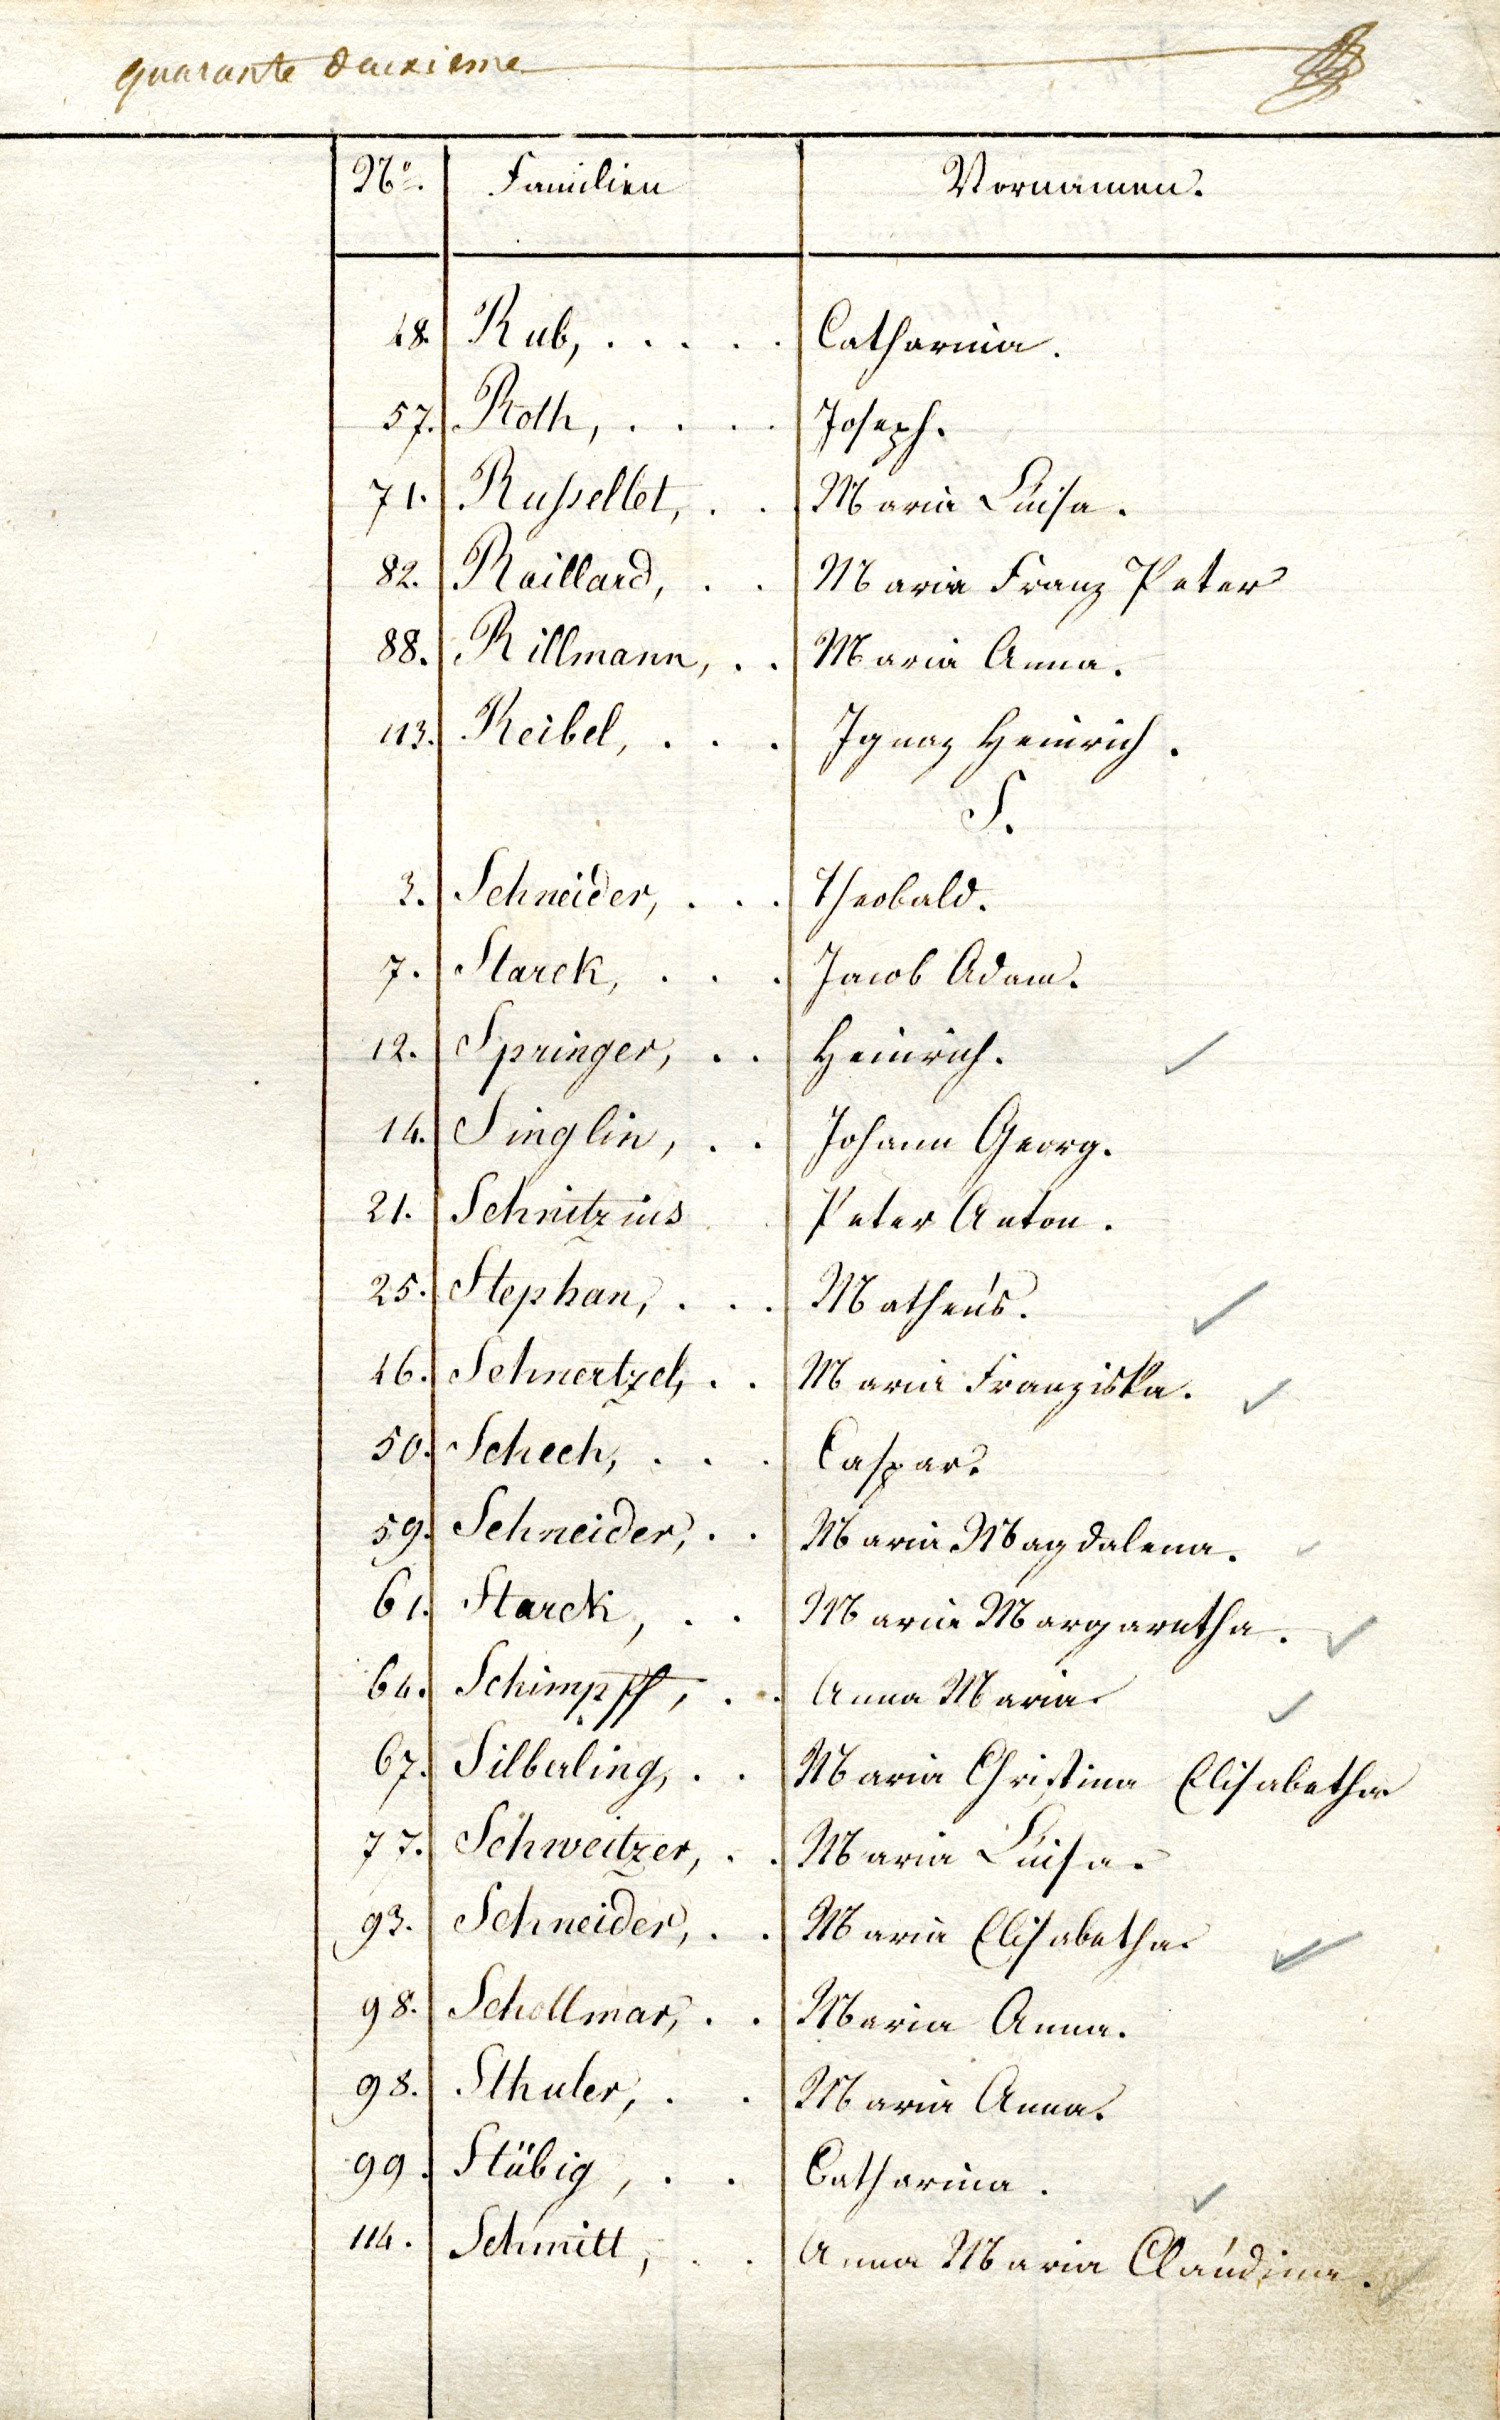 quarante deuxieme
No. Familien Vornamen.
48. Rub, . . . . . Catharina.
57. Roth, . . . . Joseph.
71. Russellet, . . Maria Luisa.
82. Raillard, . . Maria Franz Peter
88. Rillmann, . . Maria Anna.
113. Reibel, . . . Ignaz Heinrich.
S.
3. Schneider, . . . Theobald.
7. Starck, . . . Jacob Adam.
12. Springer, . . Heinrich.
14. Singlin, . . Johann Georg.
21. Schnitzius Peter Anton.
25. Stephan, . . . Matheus.
46. Schnertzel, . . Maria Franziska.
50. Schech, . . . Caspar.
59. Schneider, . . Maria Magdalena.
61. Starck, . . Maria Margaretha.
64. Schimpff, . . Anna Maria
67. Silberling, . . Maria Christina Elisabetha
77. Schweitzer, . . Maria Luisa.
93. Schneider, . . Maria Elisabetha
98. Schollmar, . . Maria Anna.
98. Sthuler, . . Maria Anna.
99. Stübig, . . Catharina.
114. Schmitt, . . Anna Maria Claudina.